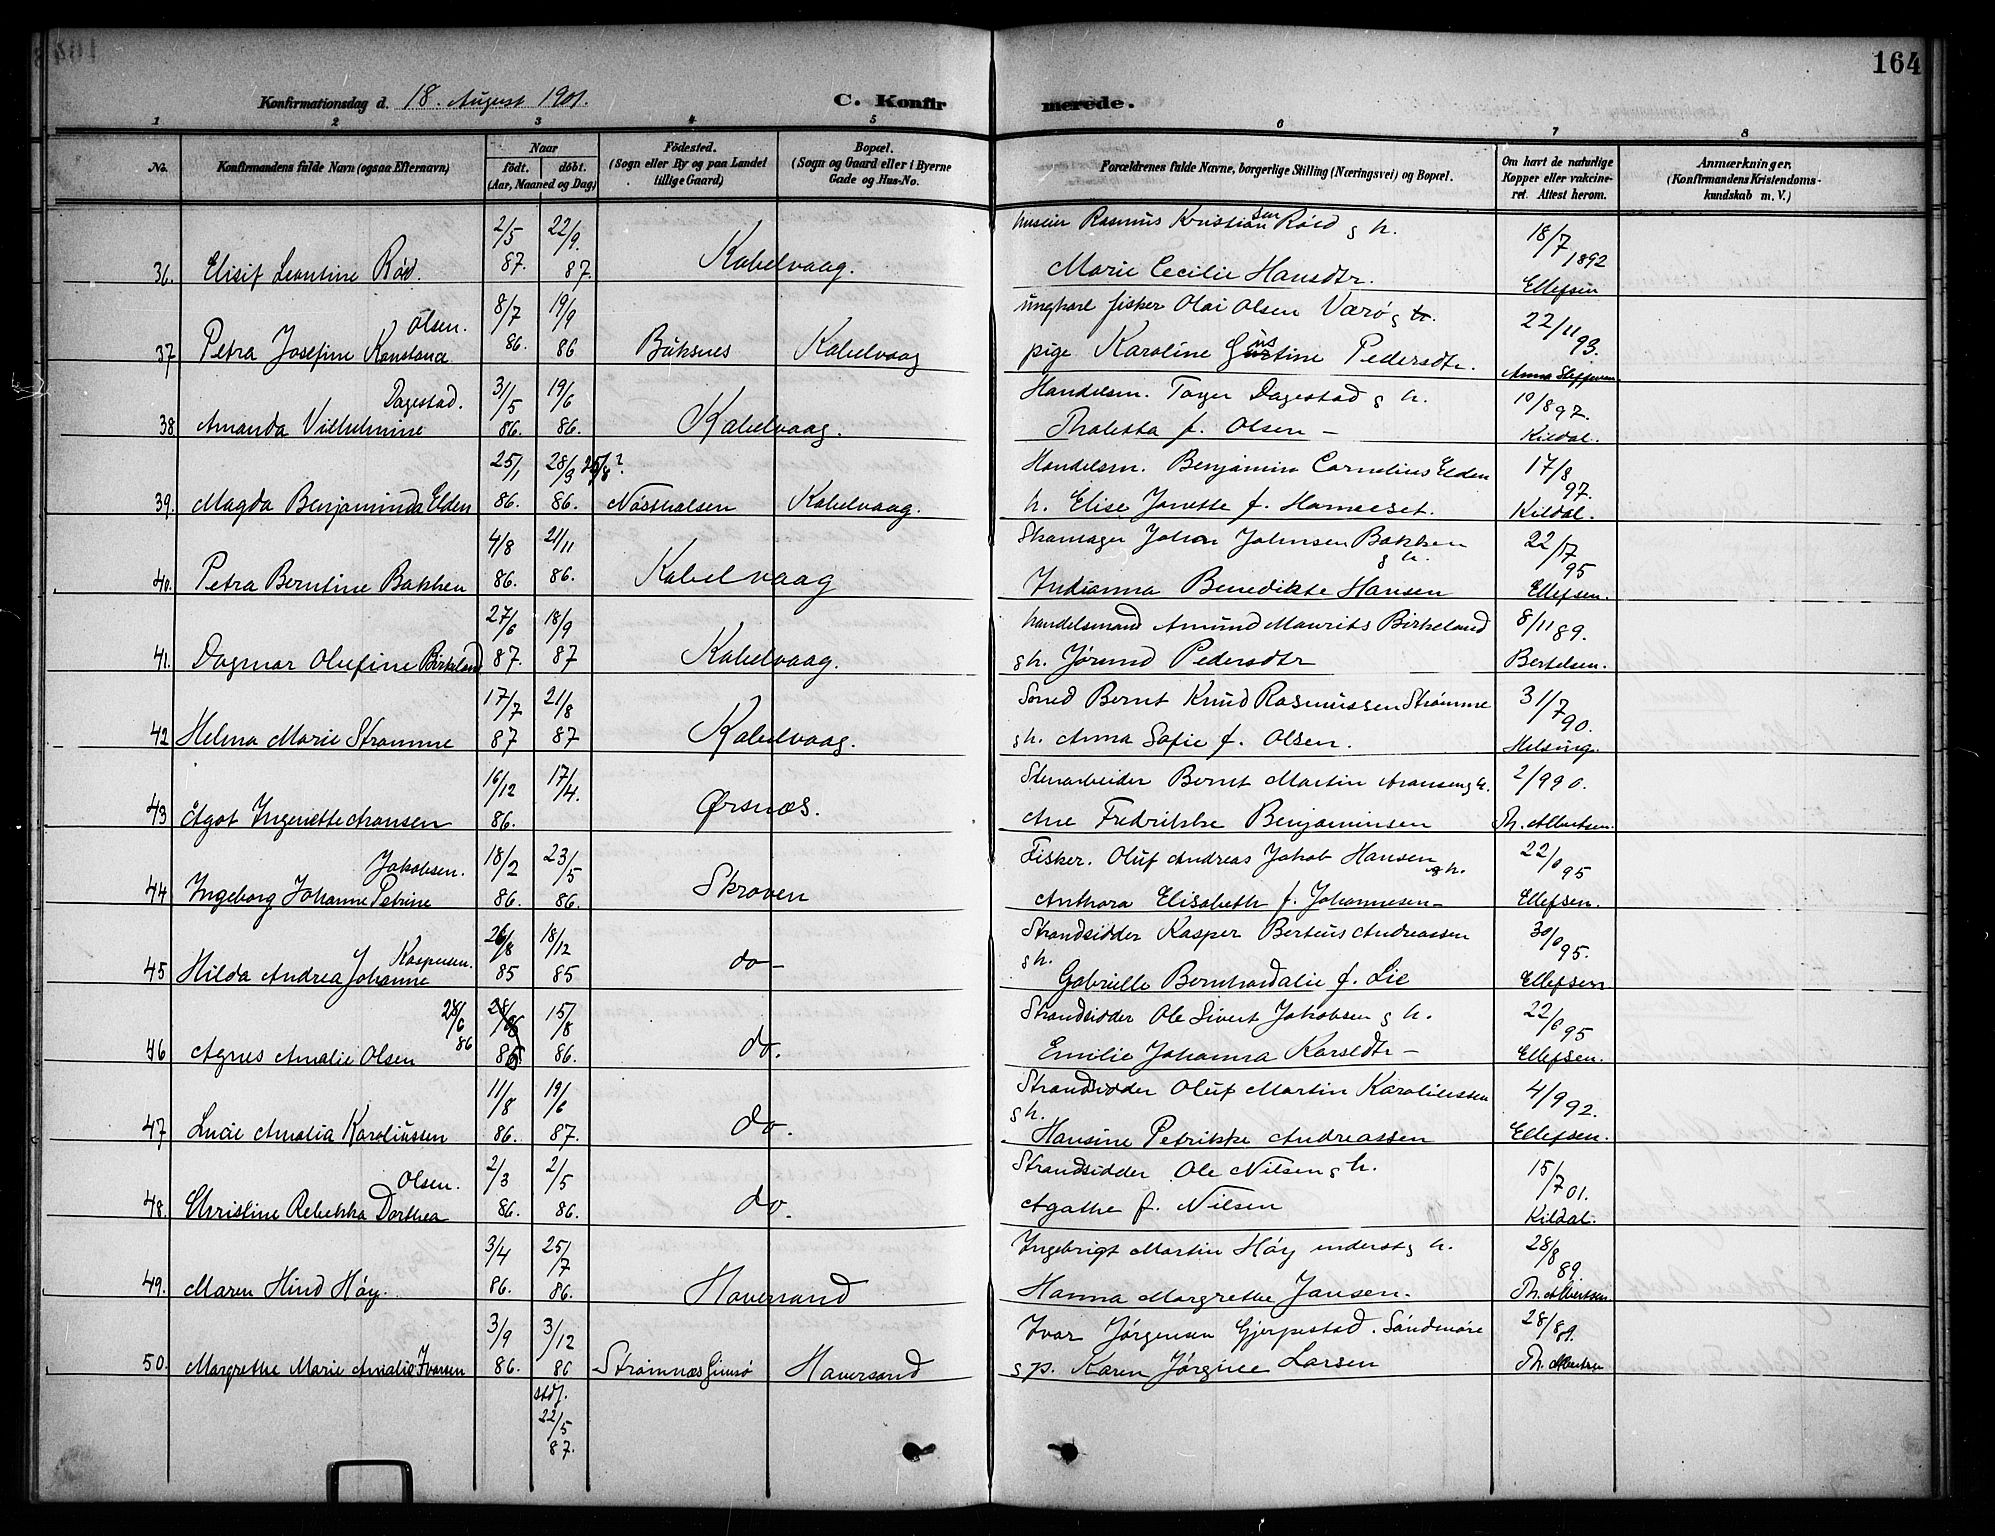 164
Konfirmationsdag d. 18. August 1901.
C. Konfirmerede.
1 2 3 4 5 6 7 8
No.
Konfirmandens fulde Navn (ogsaa Efternavn)
Naar
født. døbt.
(Aar, Maaned og Dag)
Födested.
(Sogn eller By og paa Landet
tillige Gaard)
Bopæl.
(Sogn og Gaard eller i Byerne
Gade og Hus-No.
Forældrenes fulde Navne, borgerlige Stilling (Næringsvei) og Bopæl.
Om havt de naturlige
Kopper eller vakcine-
ret. Attest herom.
Anmærkninger.
(Konfirmandens Kristendoms-
kundskab m. V.)
2/5 22/9. Rasmus Kristiansen Röed g h. 18/7 1892
36. Elisif Leontine Röd. 87. 87. Kabelvaag. Marie Cecilie Hansdtr. Ellefsen
Olsen. 8/7 19/9 ungkarl fisker Olai Olsen Værö g 22/11 93.
37 Petra Josefine Konstance 86. 86 Buksnes Kabelvaag pige Karoline Pedersdtr. Anna Steffensen
Dagestad. 31/5 19/6 Handelsm. Dagestad g h. 19/8 97.
38 Amanda Vilhelmine 86. 86. Kabelvaag. Thaletta f. Olsen – Kildal.
25/1 28/3 25/8? Handelsm. Benjamin Cornelius Elden 17/8 97.
39. Magda Benjaminda Elden 86. 86. Kabelvaag. h. Elise Janette f. Kildal.
4/8 21/11 Skomager Johan Johnsen Bakken g h. 22/7 95
40. Petra Berntine Bakken 86. 86. Kabelvaag Indianna Benedikte Hansen Ellefsen.
27/6 18/9 handelsmand Amund Maurits Birkeland 8/11 89.
41. Dagmar Olufine Birkeland 87. 87 Kabelvaag. g h. Jörund Pedersdtr Bertelsen.
17/7 21/8 Smed Bernt Knud Rasmussen Strømme 31/7 90.
42 Helma Marie Strømme 87 87 Kabelvaag. g h. Anna Sofie f. Olsen. Helsing.
16/12 17/4. Stenarbeider Bernt Martin Aronsen g h. 2/9 90.
43 Ågot Ingeriette Aronsen 86. Ørsnæs. Ane Fredrikke Benjaminsen Th. Albertsen.
Jakobsen. 18/2 23/5 Fisker. Oluf Andreas Jakob Hansen g h. 22/6 95
44 Ingeborg Johanne Petrine 86. 86. Skroven Anthora Elisabeth f. Johannesen – Ellefsen.
Kaspersen. 26/8 18/12 Strandsidder Kasper Berteus Andreassen 30/6 95.
45 Hilda Andrea Johanne 85 85 do – g h. Gabrielle Bernhardalie f. Lie Ellefsen
28/6 86 15/8 Strandsidder Ole Sivert Jakobsen g h. 22/6 95
46 Agnes Amalie Olsen 86 86. do. Emilie Johanna Karsldtr – Ellefsen.
11/8 19/6 Strandsidder Oluf Martin Karoliussen 4/9 92.
47 Lucie Amalia Karoliussen 86. 87. do. g h. Hansine Petrikke Andreassen Ellefsen.
Olsen. 2/3 2/5 Strandsidder Ole Nilsen g h. 15/7 01.
48. Christine Rebekka Dorthea 86. 86. do. Agathe f. Nilsen Kildal.
3/4 25/7 Ingebrigt Martin Höy inderst g h. 28/8 89.
49. Maren Hind Höy. 86. 86. Haversand Hanna Margrethe Jansen. Th. Albertsen
3/9 3/12 Ivar Jørgensen Gjerpestad. Söndmöre 28/8
50. Margrethe Marie Amalie Ivarsen 86. 86 Strømnæs Gimsö Haversand g p. Karen Jørgine Larsen Th. Albertsen
stdf.
22/5
87.